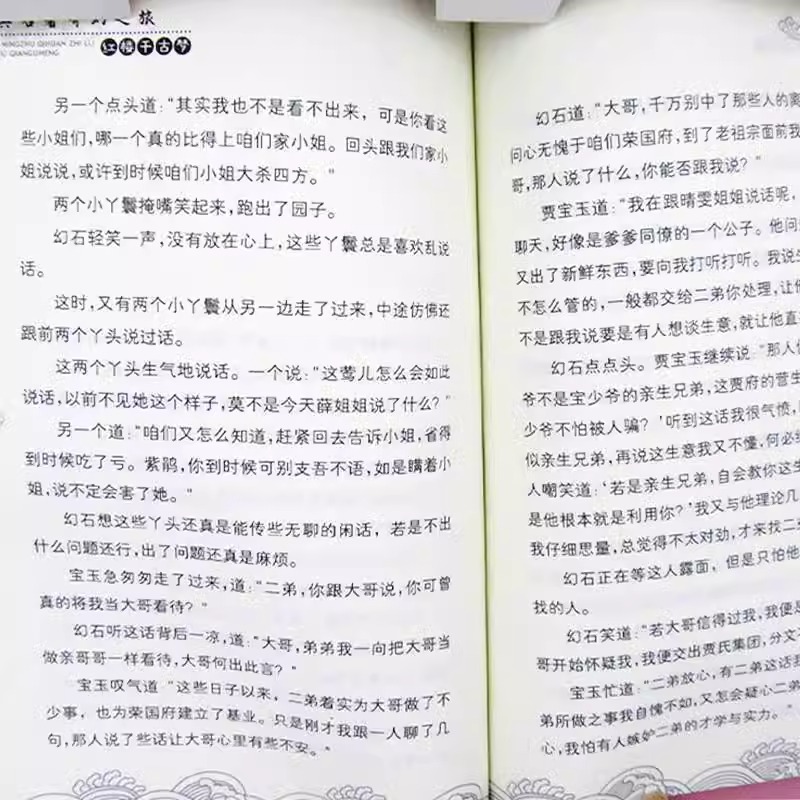 之旅
MINGZHU QIHUAN ZHI LÜ
QIANGUMENG
红楼千古梦
另一个点头道：“其实我也不是看不出来，可是你看这
些小姐们，哪一个真的比得上咱们家小姐。回头跟我们家小
姐说说，或许到时候咱们小姐大杀四方。”
两个小丫鬟掩嘴笑起来，跑出了园子。
幻石轻笑一声，没有放在心上，这些丫鬟总是喜欢乱说
话。
这时，又有两个小丫鬟从另一边走了过来，中途仿佛还
跟前两个丫头说过话。
这两个丫头生气地说话。一个说：“这莺儿怎么会如此
说话，以前不见她这个样子，莫不是今天薛姐姐说了什么？”
另一个道：“咱们又怎么知道，赶紧回去告诉小姐，省得
到时候吃了亏。紫鹃，你到时候可别支吾不语，如是瞒着小
姐，说不定会害了她。”
幻石想这些丫头还真是能传些无聊的闲话，若是不出
什么问题还行，出了问题还真是麻烦。
宝玉急匆匆走了过来，道：“二弟，你跟大哥说，你可曾
真的将我当大哥看待？”
幻石听这话背后一凉，道：“大哥，弟弟我一向把大哥当
做亲哥哥一样看待，大哥何出此言？”
宝玉叹气道：“这些日子以来，二弟着实为大哥做了不
少事，也为荣国府建立了基业。只是刚才我跟一人聊了几
句，那人说了些话让大哥心里有些不安。”
幻石道：“大哥，千万别中了那些人的离
问心无愧于咱们荣国府，到了老祖宗面前我
哥，那人说了什么，你能否跟我说？”
贾宝玉道：“我在跟晴雯姐姐说话呢，
聊天，好像是爹爹同僚的一个公子。他问
又出了新鲜东西，要向我打听打听。我说生
不怎么管的，一般都交给二弟你处理，让他
不是跟我说要是有人想谈生意，就让他直
幻石点点头。贾宝玉继续说：“那人
爷不是宝少爷的亲生兄弟，这贾府的营生
少爷不怕被人骗？’听到这话我很气愤，
似亲生兄弟，再说这生意我又不懂，何必
人嘲笑道：‘若是亲生兄弟，自会教你这生
是他根本就是利用你？’我又与他理论几
我仔细思量，总觉得不太对劲，才来找二
幻石正在等这人露面，但是只怕他
找的人。
幻石笑道：“若大哥信得过我，我便是
哥开始怀疑我，我便交出贾氏集团，分文
宝玉忙道：“二弟放心，有二弟这话
弟所做之事我自愧不如，又怎会疑心二
心，我怕有人嫉妒二弟的才学与实力。”